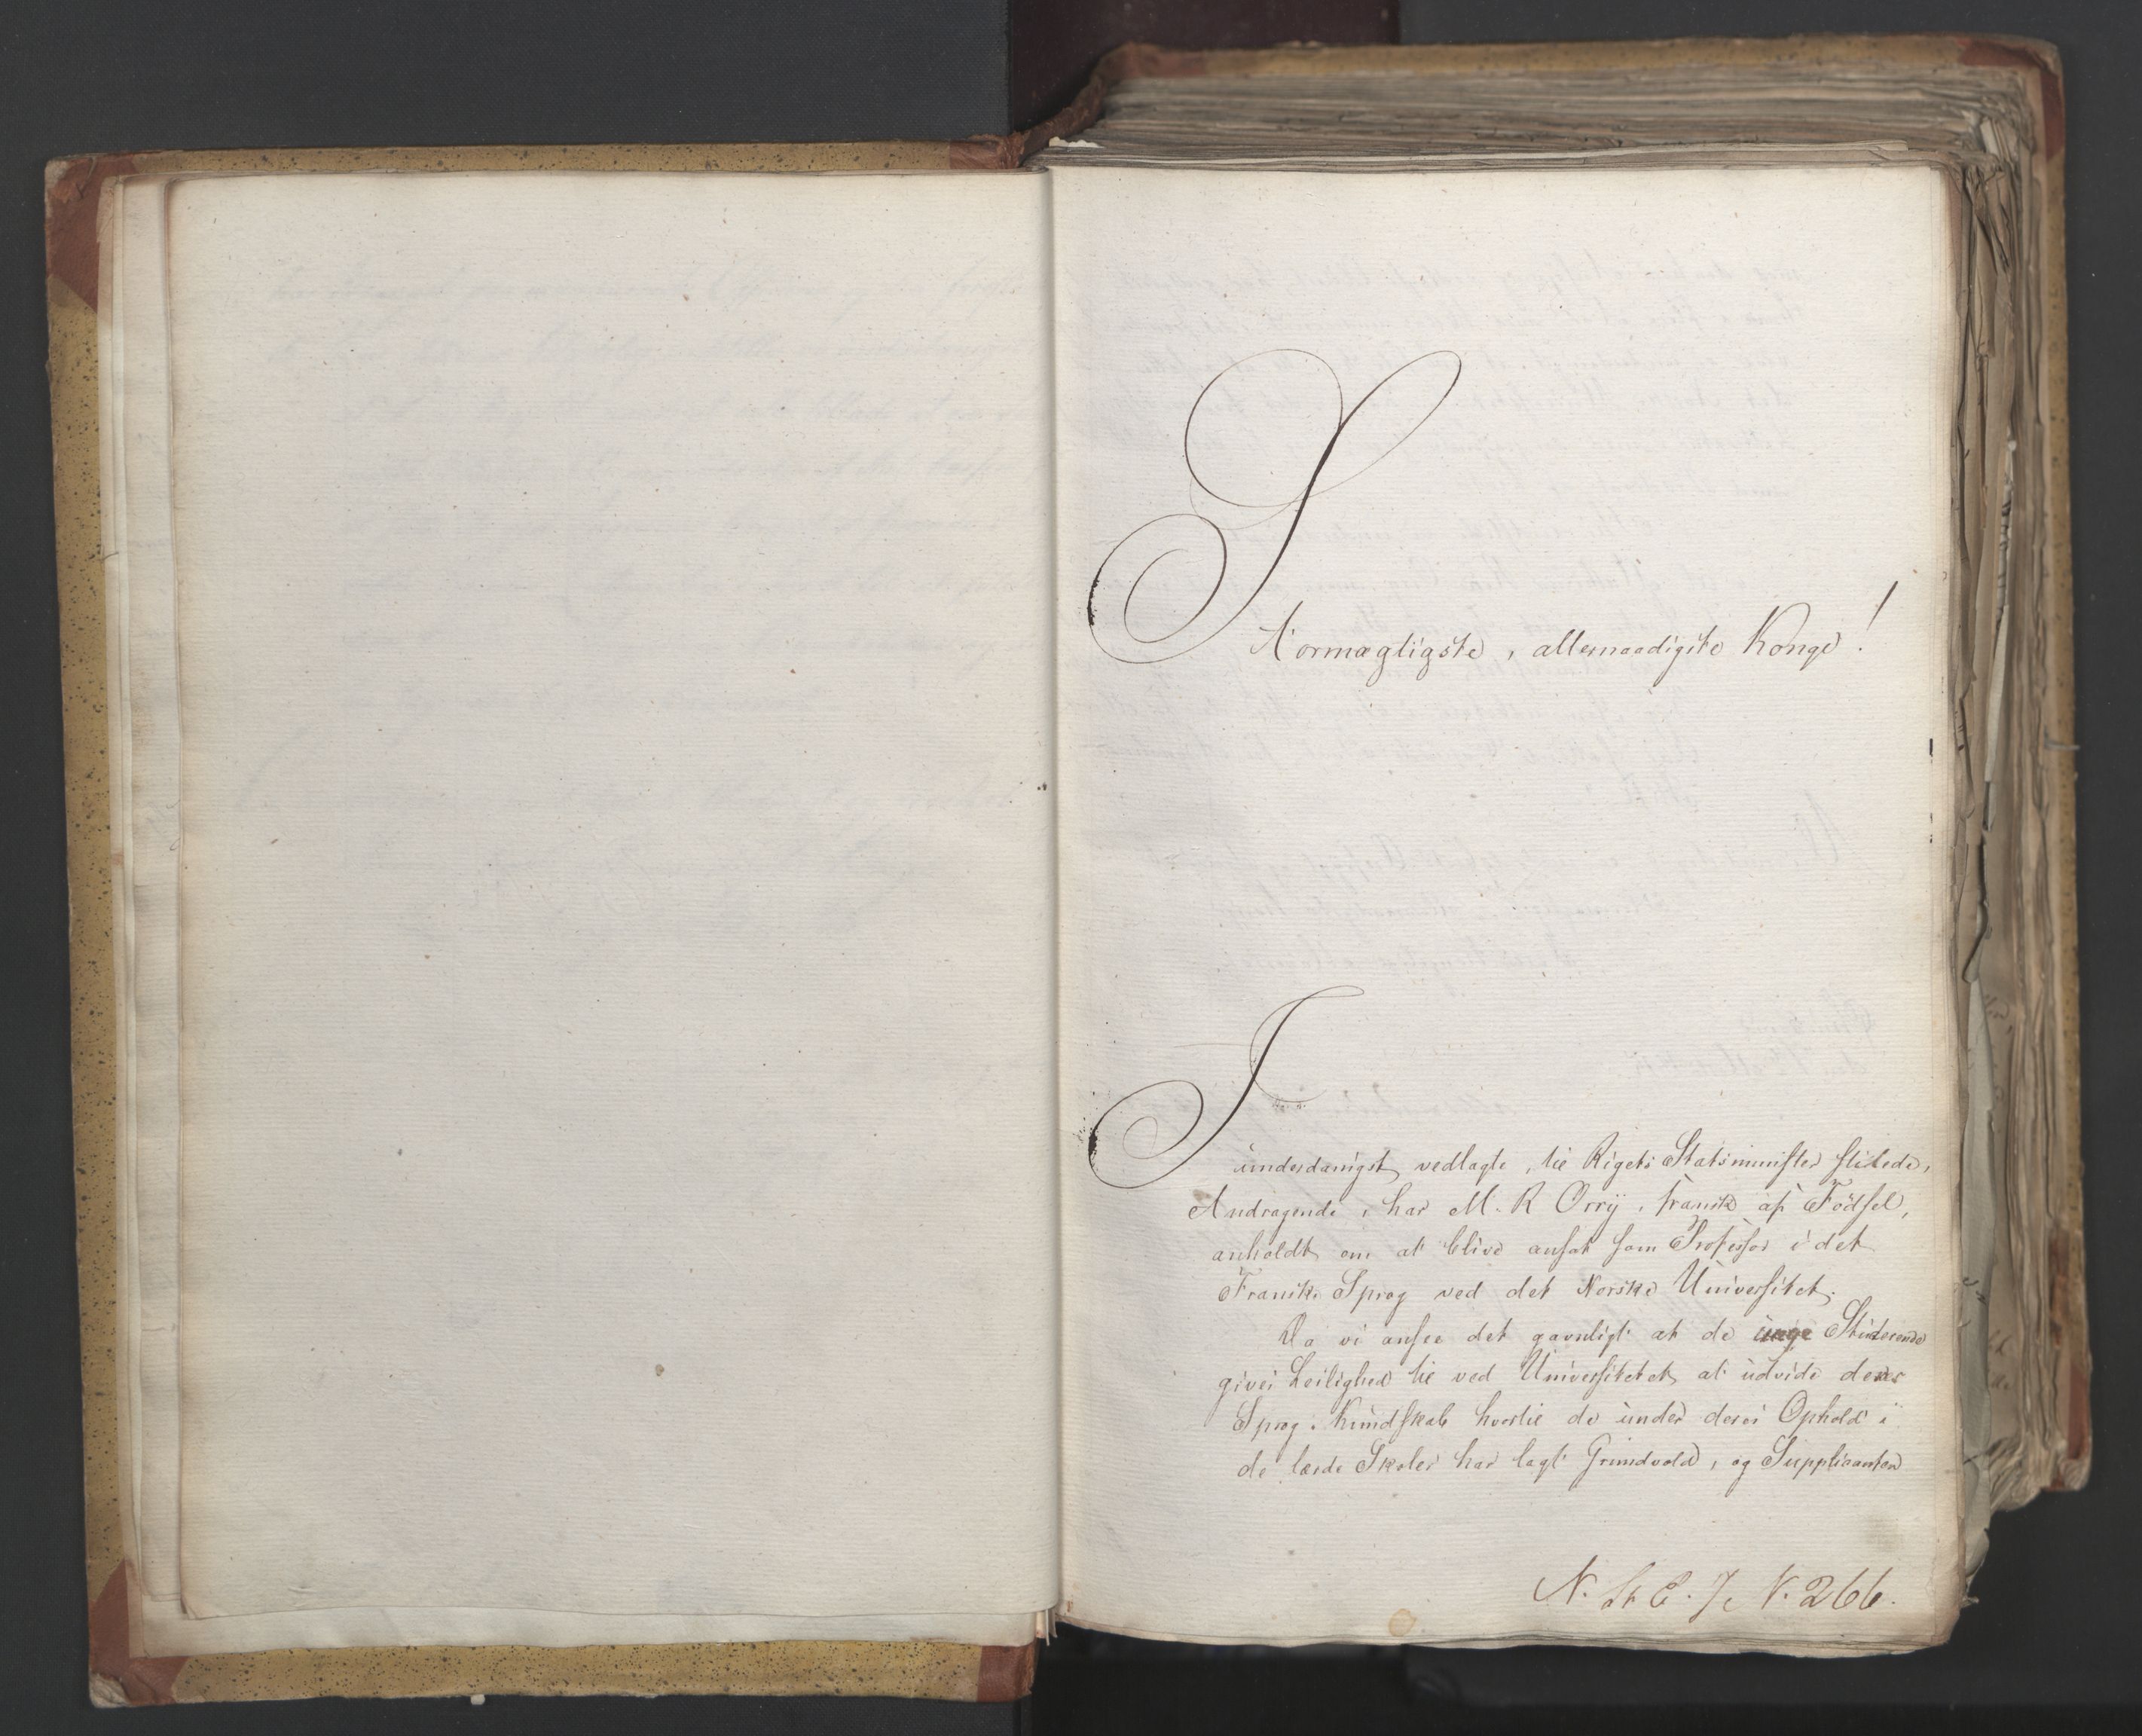 Stormægtigste, allernaadigste Konge!
I
underdanigst vedlagte, til Rigets Statsminister stilede,
Andragende, har M. R Orry, Fransk af Födsel,
anholdt om at blive ansat som Professor i det
Franske Sprog ved det Norske Universitet.
Da vi ansee det gavnligt at de unge Studerende
gives Leilighed til ved Universitetet at udvide deres
Sprog-Kundskab hvortil de under deres Ophold i
de lærde Skoler har lagt Grundvold, og Supplicanten
N. St E. J. N. 266.